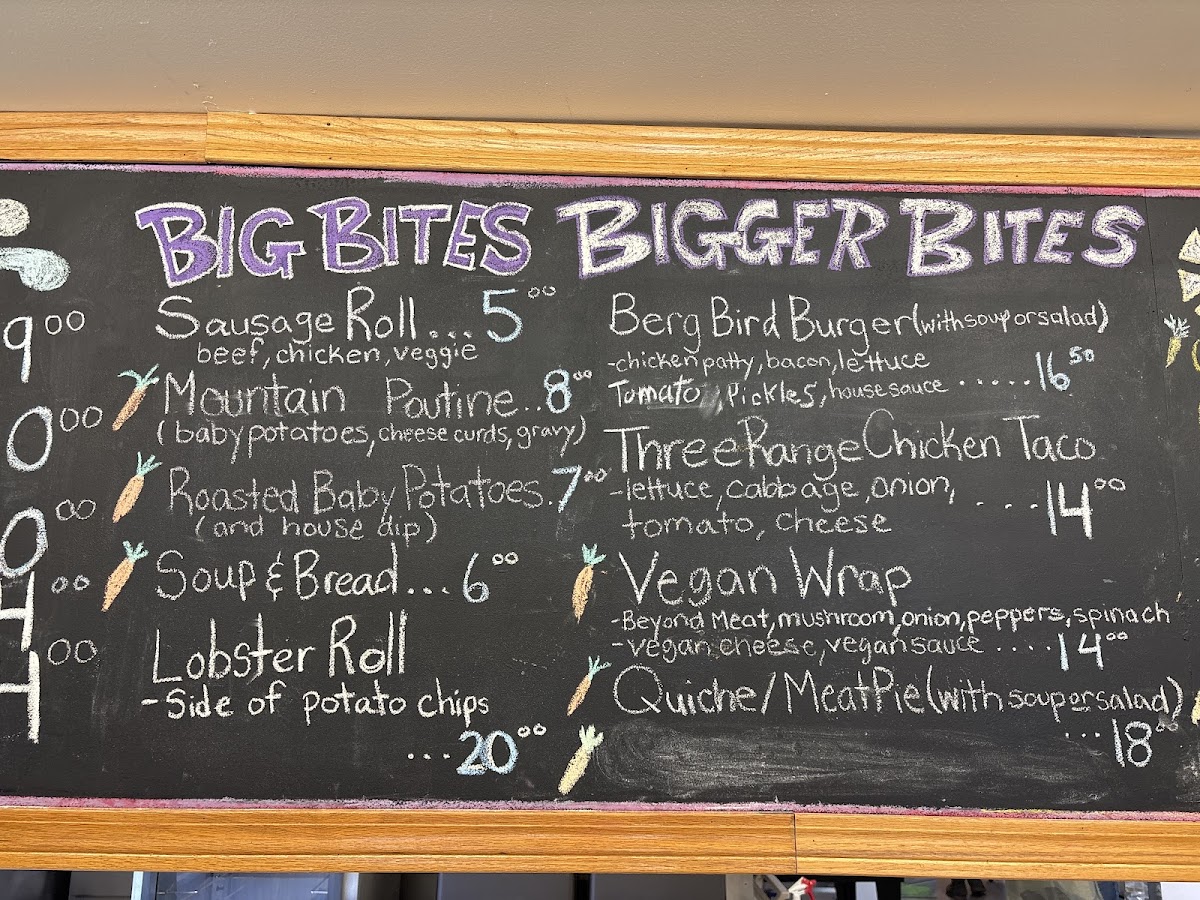 9 00
0 00
0 00
4 00
4 00
BIG BITES
Sausage Roll ... 5 00
beef, chicken, veggie
Mountain Poutine .. 8 00
(baby potatoes, cheese curds, gravy)
Roasted Baby Potatoes. 7 00
(and house dip)
Soup & Bread ... 6 00
Lobster Roll
- Side of potato chips
... 20 00
BIGGER BITES
Berg Bird Burger (with soup or salad)
- chicken patty, bacon, lettuce
Tomato, Pickles, house sauce ...... 16 50
Three Range Chicken Taco
- lettuce, cabbage, onion,
tomato, cheese .... 14 00
Vegan Wrap
- Beyond Meat, mushroom, onion, peppers, spinach
- vegan cheese, vegan sauce .... 14 00
Quiche/Meat Pie (with soup or salad)
... 18 00